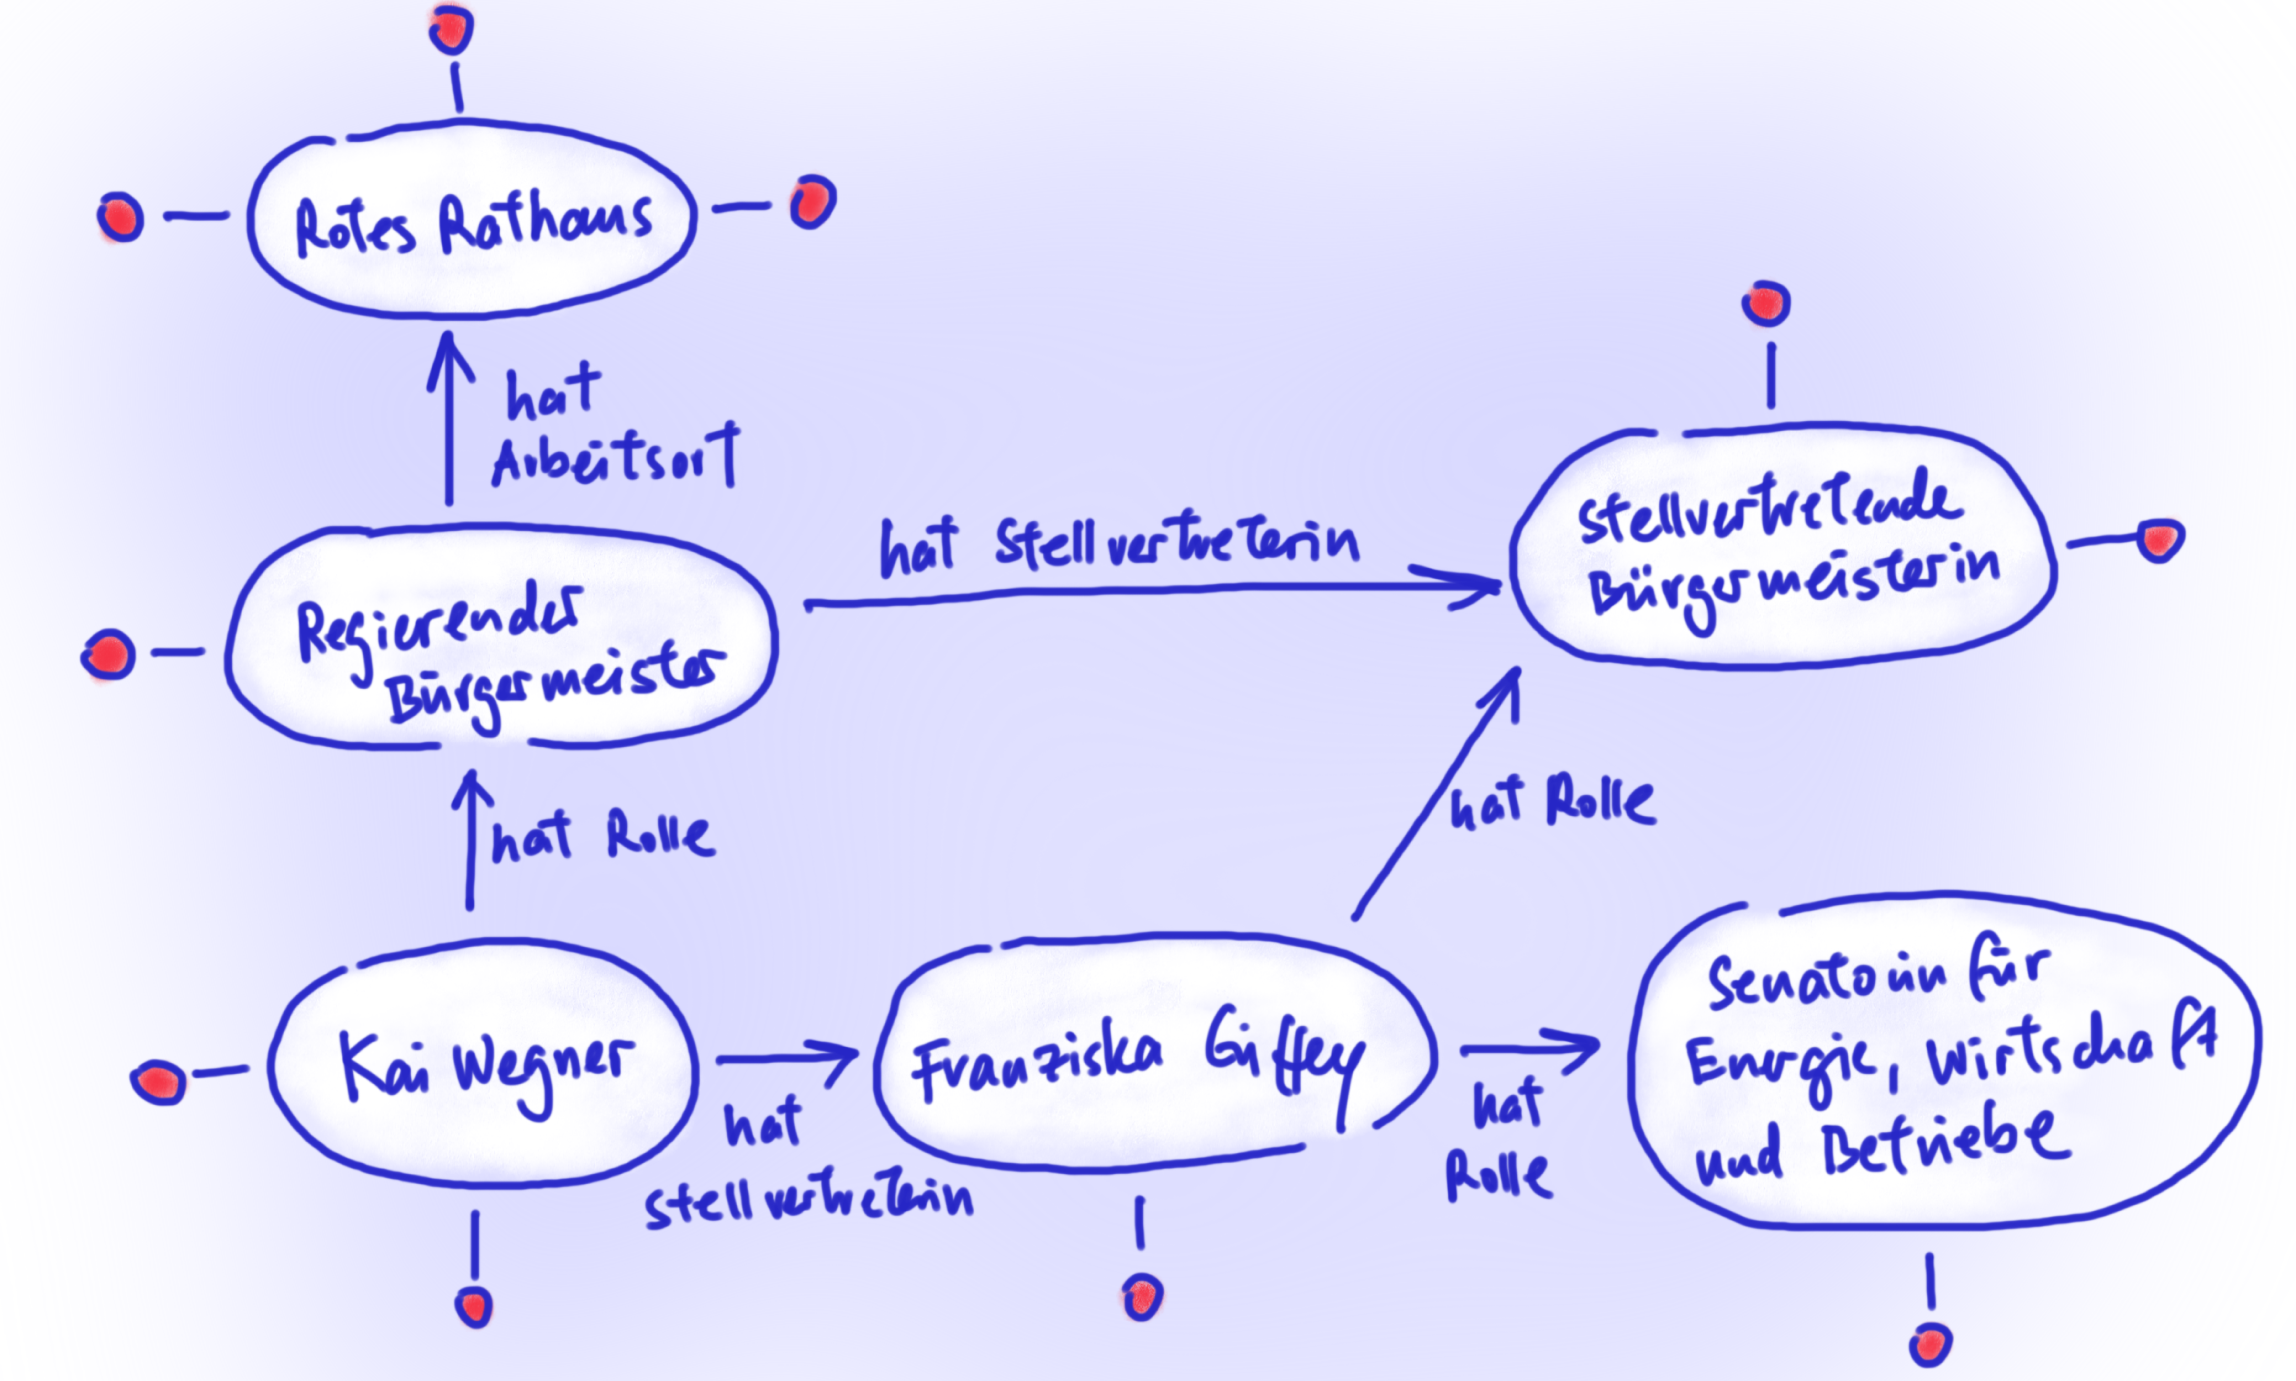 Rotes Rathaus
hat
Arbeitsort
hat Stellvertreterin
stellvertretende
Bürgermeisterin
Regierender
Bürgermeister
hat Rolle
hat Rolle
Kai Wegner
hat
stellvertreterin
Franziska Giffey
hat
Rolle
Senatorin für
Energie, Wirtschaft
und Betriebe